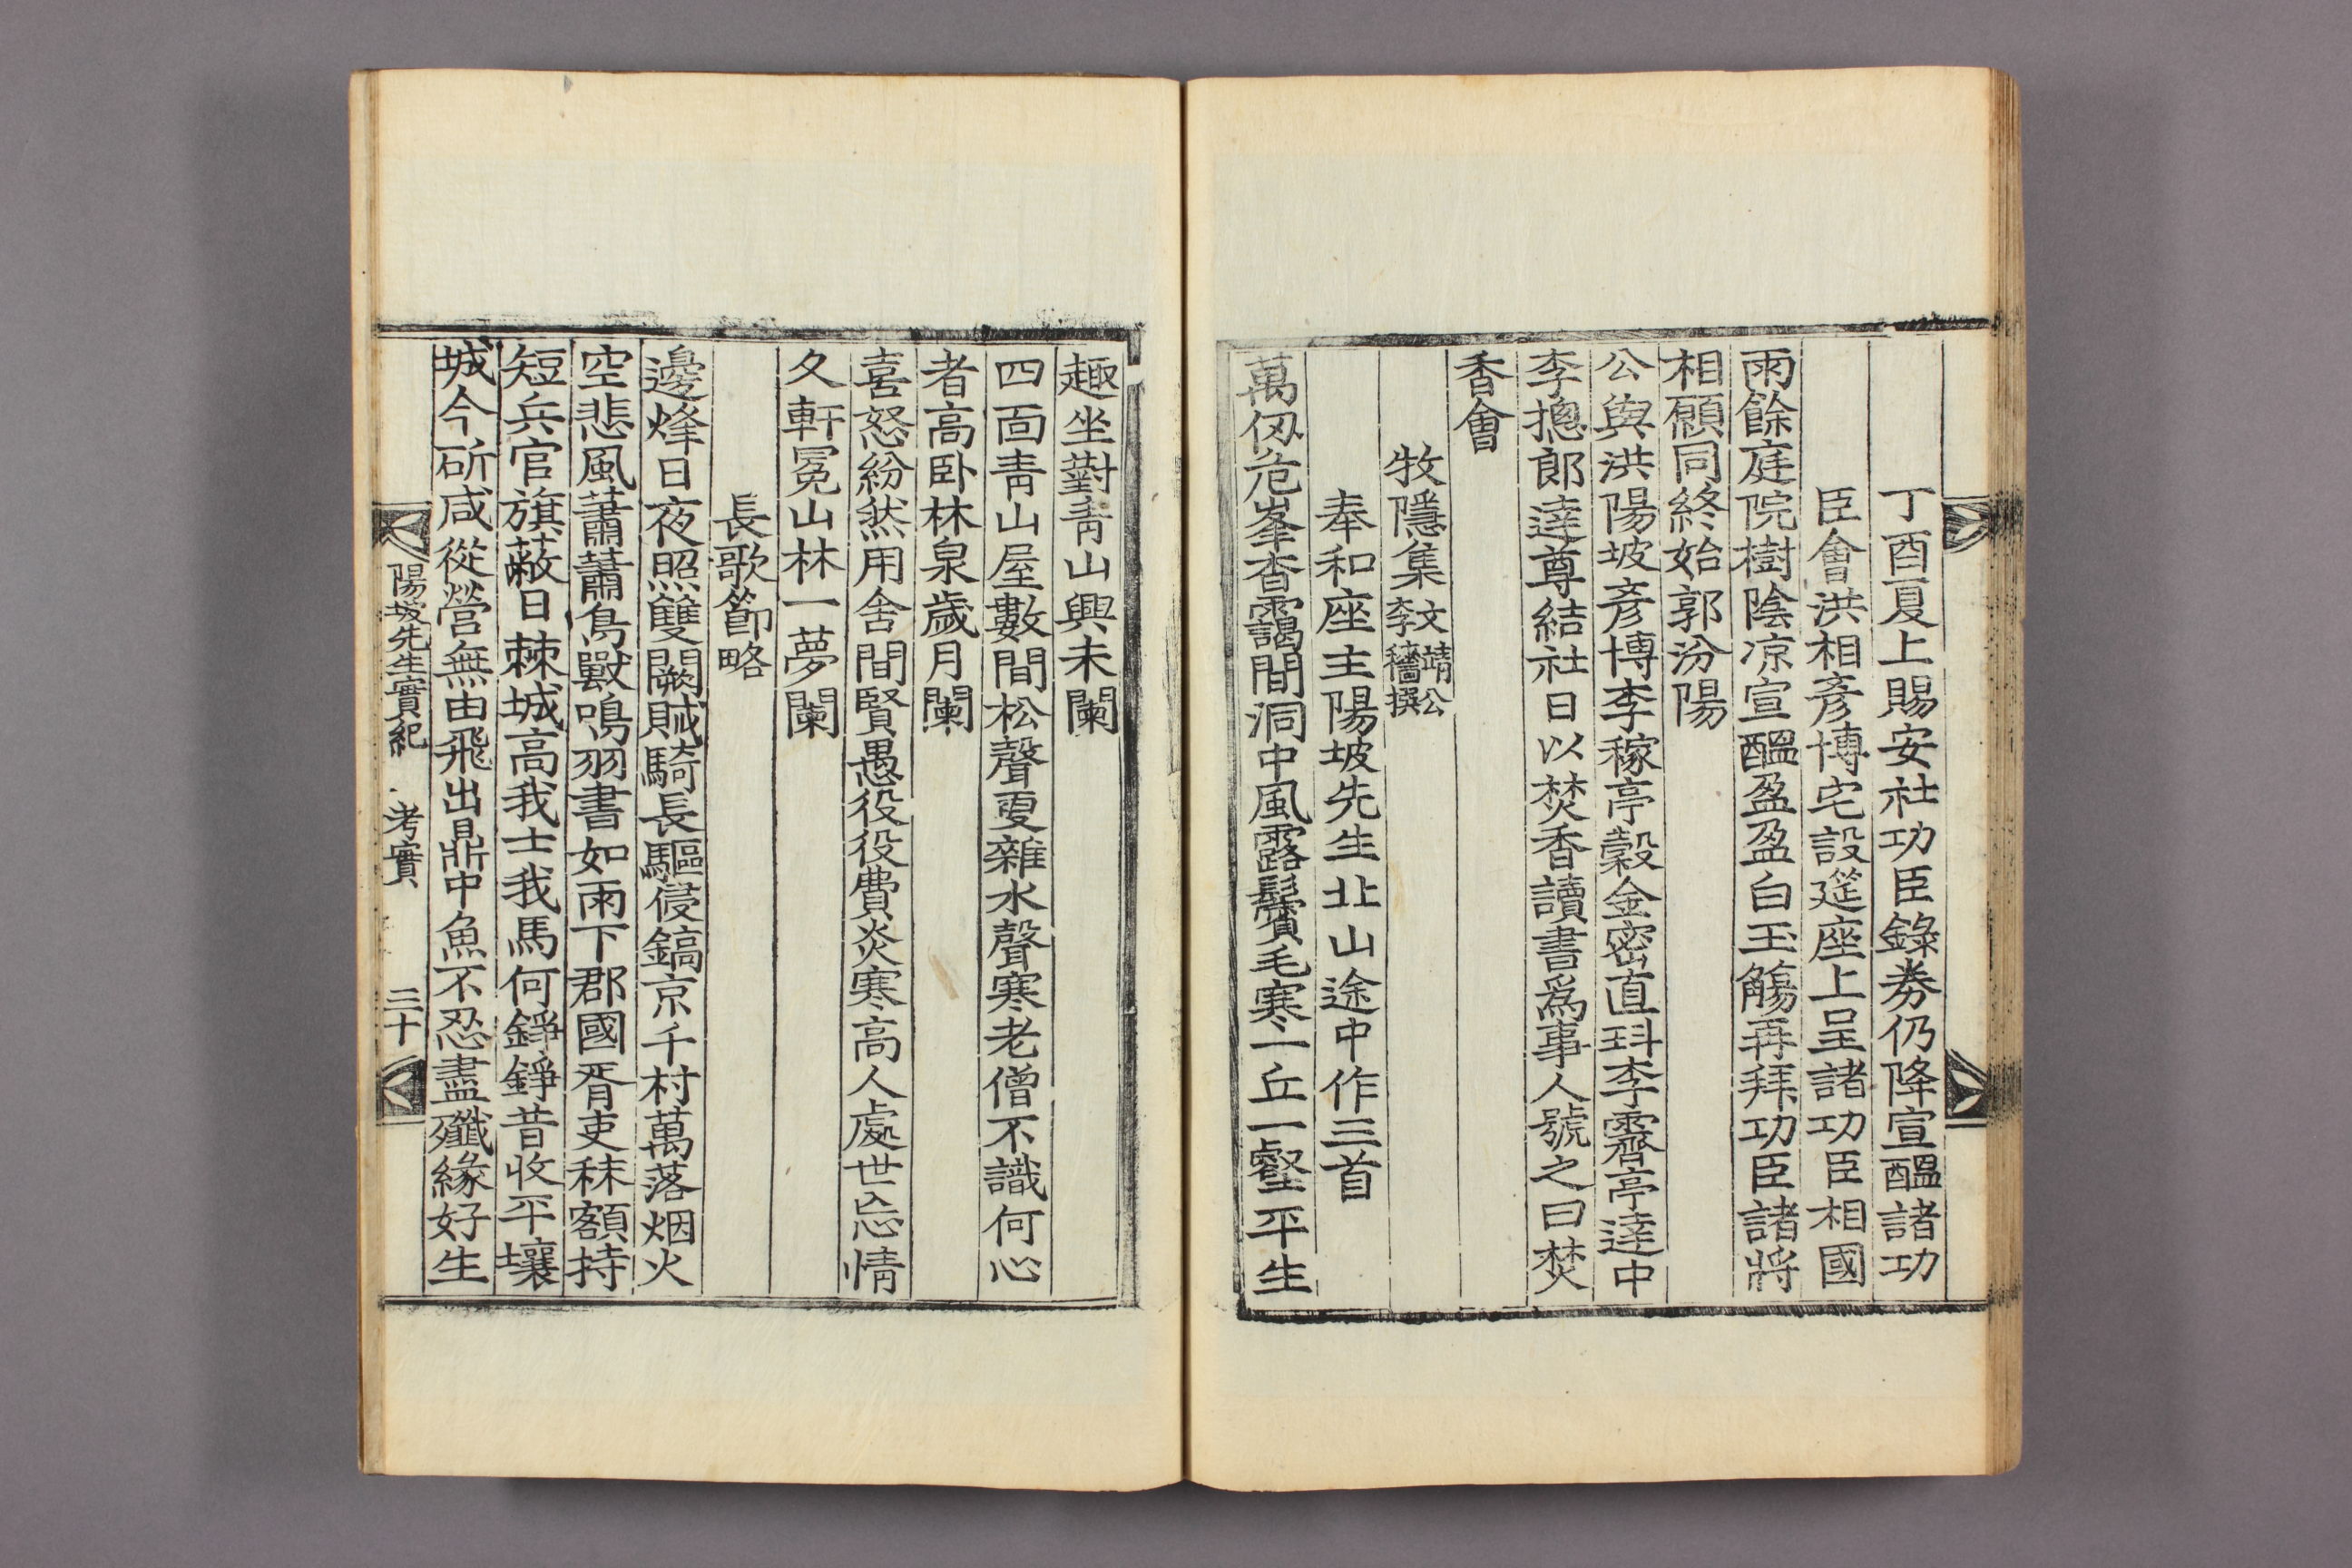 丁酉夏上賜安社功臣錄券仍降宣醞諸功
臣會洪相彥博宅設筵座上呈諸功臣相國
雨餘庭院樹陰凉宣醞盈盈白玉觴再拜功臣諸將
相願同終始郭汾陽
公與洪陽坡彥博李稼亭穀金密直玤李霽亭達中
李摠郞達尊結社日以焚香讀書爲事人號之曰焚
香會
牧隱集文靖公李穡撰
奉和座主陽坡先生北山途中作三首
萬仭危峯杳靄間洞中風露鬢毛寒一丘一壑平生
趣坐對靑山興未闌
四面靑山屋數間松聲更雜水聲寒老僧不識何心
者高臥林泉歲月闌
喜怒紛然用舍間賢愚役役費炎寒高人處世忘情
久軒冕山林一夢闌
長歌節略
邊烽日夜照雙闕賊騎長驅侵鎬京千村萬落烟火
空悲風蕭蕭鳥獸鳴羽書如雨下郡國胥吏秣額持
短兵官旗蔽日棘城高我士我馬何錚錚昔收平壤
城今斫咸從營無由飛出鼎中魚不忍盡殲緣好生
陽坡先生實紀 考實 三十